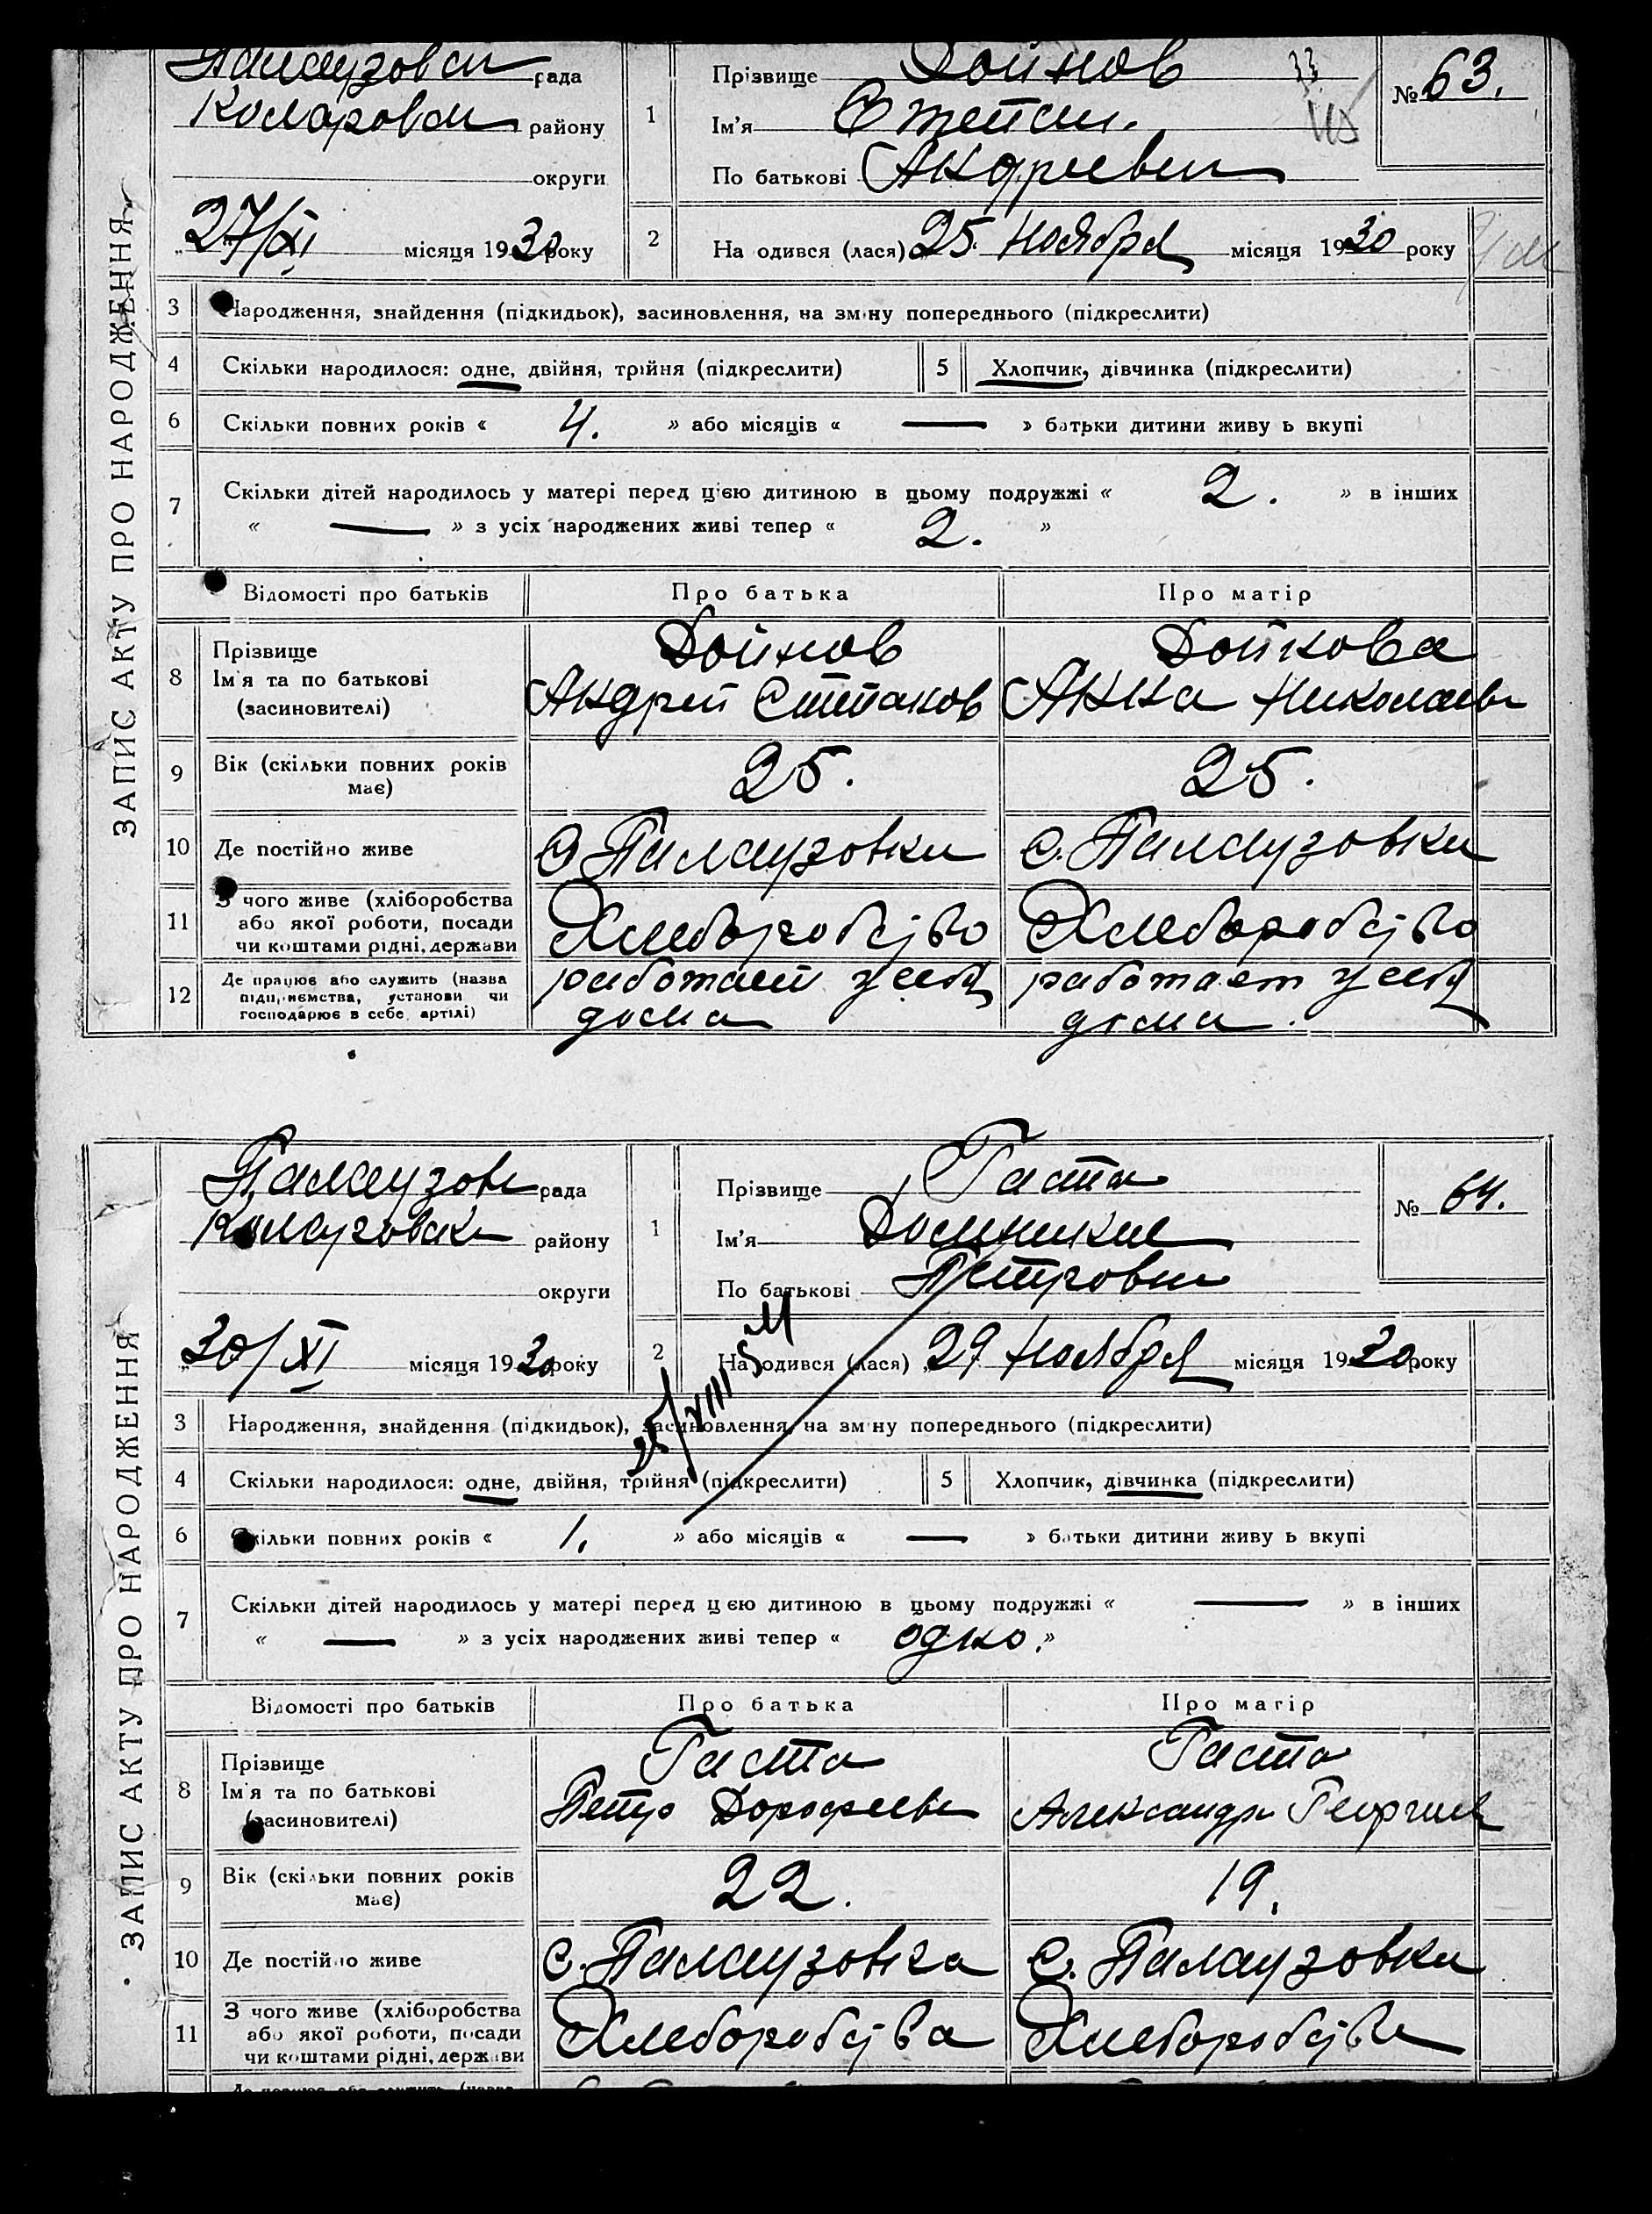 ЗАПИС АКТУ ПРО НАРОДЖЕННЯ
Палаузовск рада
Коларовск району
округи
27/XI місяця 1930 року
1 Прізвище Дойнов
Ім'я Степан.
По батькові Андреевич
№ 63.
2 На одився (лася) 25. Ноября місяця 1930 року
3 Народження, знайдення (підкидьок), засиновлення, на зміну попереднього (підкреслити)
4 Скільки народилося: одне, двійня, трійня (підкреслити) 5 Хлопчик, дівчинка (підкреслити)
6 Скільки повних років « 4. » або місяців « — » батьки дитини живу ь вкупі
7 Скільки дітей народилось у матері перед цією дитиною в цьому подружжі « 2. » в інших
« — » з усіх народжених живі тепер « 2. »
Відомості про батьків Про батька Про матір
8 Прізвище Дойнов Дойнова
Ім'я та по батькові Андрей Степанов Анна Николаевн
(засиновителі)
9 Вік (скільки повних років 25. 25.
має)
10 Де постійно живе с Палаузовки с. Палаузовки
11 З чого живе (хліборобства
або якої роботи, посади Хлеборобство Хлеборобство
чи коштами рідні, держави
12 Де працює або служить (назва работает у себя работает у себя
підприємства, установи чи дома дома.
господарює в себе, артілі)
ЗАПИС АКТУ ПРО НАРОДЖЕННЯ
Палаузов рада
Коларовск району
округи
30/XI місяця 1930 року
1 Прізвище Гаста
Ім'я Домникия
По батькові Петровн
№ 64.
2 На одився (лася) 29 Ноября місяця 1930 року
3 Народження, знайдення (підкидьок), засиновлення, на зміну попереднього (підкреслити)
4 Скільки народилося: одне, двійня, трійня (підкреслити) 5 Хлопчик, дівчинка (підкреслити)
6 Скільки повних років « 1. » або місяців « — » батьки дитини живу ь вкупі
7 Скільки дітей народилось у матері перед цією дитиною в цьому подружжі « — » в інших
« — » з усіх народжених живі тепер « одно. »
Відомості про батьків Про батька Про матір
8 Прізвище Гаста Гаста
Ім'я та по батькові Петр Дорофеев Александра Георгиев
(засиновителі)
9 Вік (скільки повних років 22. 19.
має)
10 Де постійно живе с. Палаузовка с. Палаузовки
11 З чого живе (хліборобства
або якої роботи, посади Хлеборобства Хлеборобств
чи коштами рідні, держави